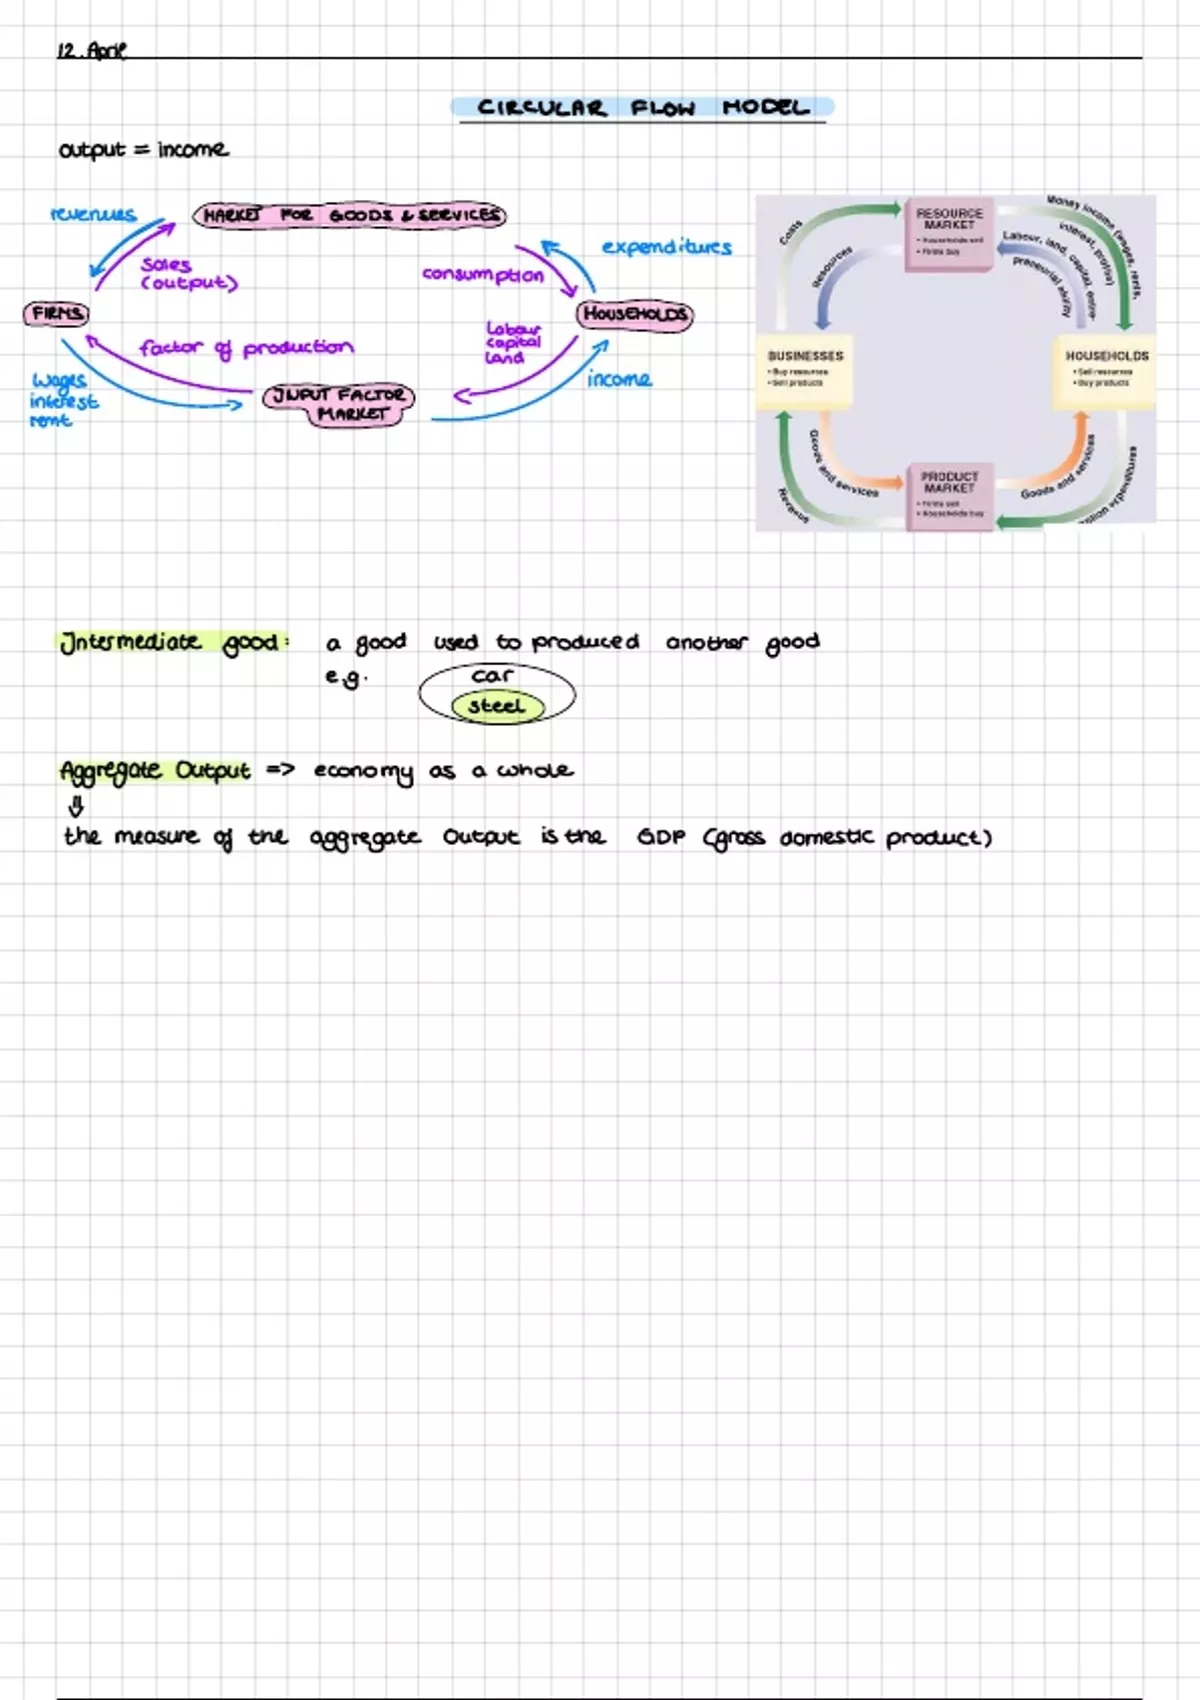 12. April
CIRCULAR FLOW MODEL
output = income
revenues
MARKET FOR GOODS & SERVICES
expenditures
sales
(output)
consumption
FIRMS
HOUSEHOLDS
factor of production
Labour
capital
Land
wages
interest
rent
INPUT FACTOR
MARKET
income
RESOURCE
MARKET
• Households sell
• Firms buy
Costs
Resources
Money income (wages, rents,
interest, profits)
Labour, land, capital, entre-
preneurial ability
BUSINESSES
• Buy resources
• Sell products
HOUSEHOLDS
• Sell resources
• Buy products
Goods and services
Revenue
PRODUCT
MARKET
• Firms sell
• Households buy
Goods and services
Intermediate good: a good used to produced another good
e.g. car
steel
Aggregate Output => economy as a whole
⇓
the measure of the aggregate Output is the GDP (gross domestic product)